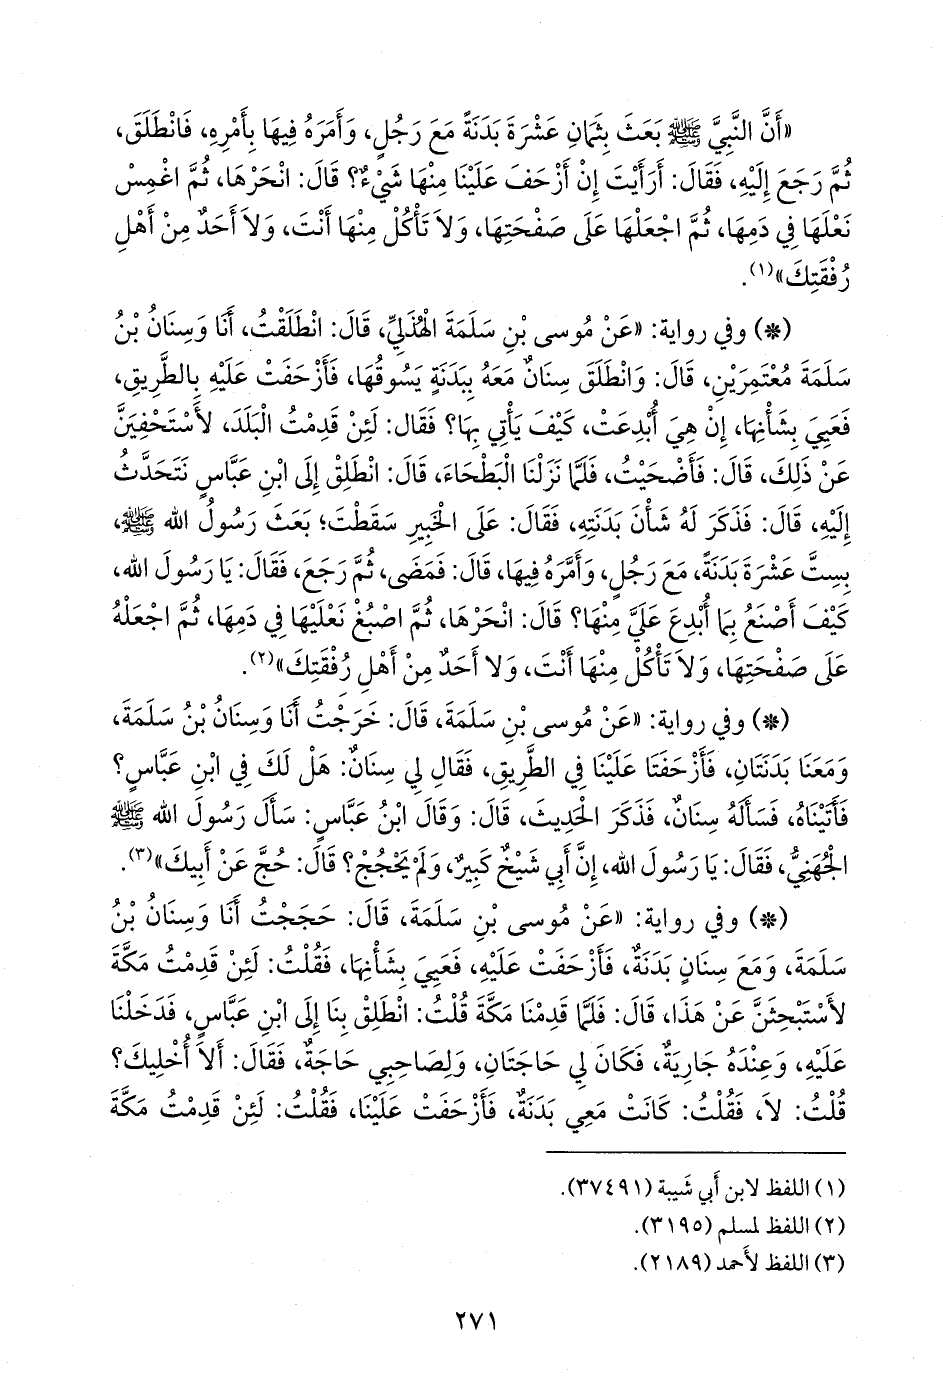 «أَنَّ النَّبِيَّ ﷺ بَعَثَ بِثَمَانِ عَشْرَةَ بَدَنَةً مَعَ رَجُلٍ، وَأَمَرَهُ فِيهَا بِأَمْرِهِ، فَانْطَلَقَ،
ثُمَّ رَجَعَ إِلَيْهِ، فَقَالَ: أَرَأَيْتَ إِنْ أَزْحَفَ عَلَيْنَا مِنْهَا شَيْءٌ؟ قَالَ: انْحَرْهَا، ثُمَّ اغْمِسْ
نَعْلَهَا فِي دَمِهَا، ثُمَّ اجْعَلْهَا عَلَى صَفْحَتِهَا، وَلاَ تَأْكُلْ مِنْهَا أَنْتَ، وَلاَ أَحَدٌ مِنْ أَهْلِ
رُفْقَتِكَ»(١).
(*) وفي رواية: «عَنْ مُوسى بْنِ سَلَمَةَ الْهُذَلِيِّ، قَالَ: انْطَلَقْتُ، أَنَا وَسِنَانُ بْنُ
سَلَمَةَ مُعْتَمِرَيْنِ، قَالَ: وَانْطَلَقَ سِنَانٌ مَعَهُ بِبَدَنَةٍ يَسُوقُهَا، فَأَزْحَفَتْ عَلَيْهِ بِالطَّرِيقِ،
فَعَيِيَ بِشَأْنِهَا، إِنْ هِيَ أُبْدِعَتْ، كَيْفَ يَأْتِي بِهَا؟ فَقَالَ: لَئِنْ قَدِمْتُ الْبَلَدَ، لأَسْتَحْفِيَنَّ
عَنْ ذَلِكَ، قَالَ: فَأَضْحَيْتُ، فَلَمَّا نَزَلْنَا الْبَطْحَاءَ، قَالَ: انْطَلِقْ إِلَى ابْنِ عَبَّاسٍ نَتَحَدَّثُ
إِلَيْهِ، قَالَ: فَذَكَرَ لَهُ شَأْنَ بَدَنَتِهِ، فَقَالَ: عَلَى الْخَبِيرِ سَقَطْتَ؛ بَعَثَ رَسُولُ الله ﷺ،
بِسِتَّ عَشْرَةَ بَدَنَةً، مَعَ رَجُلٍ، وَأَمَّرَهُ فِيهَا، قَالَ: فَمَضَى، ثُمَّ رَجَعَ، فَقَالَ: يَا رَسُولَ الله،
كَيْفَ أَصْنَعُ بِمَا أُبْدِعَ عَلَيَّ مِنْهَا؟ قَالَ: انْحَرْهَا، ثُمَّ اصْبُغْ نَعْلَيْهَا فِي دَمِهَا، ثُمَّ اجْعَلْهُ
عَلَى صَفْحَتِهَا، وَلاَ تَأْكُلْ مِنْهَا أَنْتَ، وَلا أَحَدٌ مِنْ أَهْلِ رُفْقَتِكَ»(٢).
(*) وفي رواية: «عَنْ مُوسى بْنِ سَلَمَةَ، قَالَ: خَرَجْتُ أَنَا وَسِنَانُ بْنُ سَلَمَةَ،
وَمَعَنَا بَدَنَتَانِ، فَأَزْحَفَتَا عَلَيْنَا فِي الطَّرِيقِ، فَقَالِ لِي سِنَانٌ: هَلْ لَكَ فِي ابْنِ عَبَّاسٍ؟
فَأَتَيْنَاهُ، فَسَأَلَهُ سِنَانٌ، فَذَكَرَ الْحَدِيثَ، قَالَ: وَقَالَ ابْنُ عَبَّاسٍ: سَأَلَ رَسُولَ الله ﷺ
الْجُهَنِيُّ، فَقَالَ: يَا رَسُولَ الله، إِنَّ أَبِي شَيْخٌ كَبِيرٌ، وَلَمْ يَحْجُجْ؟ قَالَ: حُجَّ عَنْ أَبِيكَ»(٣).
(*) وفي رواية: «عَنْ مُوسى بْنِ سَلَمَةَ، قَالَ: حَجَجْتُ أَنَا وَسِنَانُ بْنُ
سَلَمَةَ، وَمَعَ سِنَانٍ بَدَنَةٌ، فَأَزْحَفَتْ عَلَيْهِ، فَعَيِيَ بِشَأْنِهَا، فَقُلْتُ: لَئِنْ قَدِمْتُ مَكَّةَ
لأَسْتَبْحِثَنَّ عَنْ هَذَا، قَالَ: فَلَمَّا قَدِمْنَا مَكَّةَ قُلْتُ: انْطَلِقْ بِنَا إِلَى ابْنِ عَبَّاسٍ، فَدَخَلْنَا
عَلَيْهِ، وَعِنْدَهُ جَارِيَةٌ، فَكَانَ لِي حَاجَتَانِ، وَلِصَاحِبِي حَاجَةٌ، فَقَالَ: أَلاَ أُخْلِيكَ؟
قُلْتُ: لاَ، فَقُلْتُ: كَانَتْ مَعِي بَدَنَةٌ، فَأَزْحَفَتْ عَلَيْنَا، فَقُلْتُ: لَئِنْ قَدِمْتُ مَكَّةَ
(١) اللفظ لابن أَبي شَيبة (٣٧٤٩١).
(٢) اللفظ لمسلم (٣١٩٥).
(٣) اللفظ لأَحمد (٢١٨٩).
٢٧١